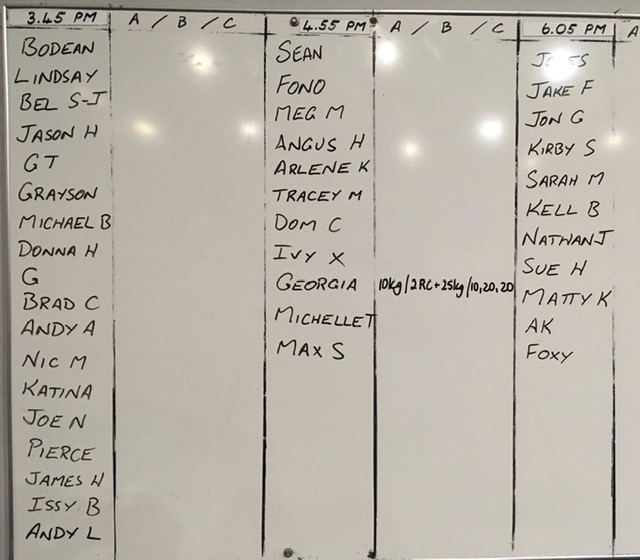 3.45 PM A / B / C
BODEAN
LINDSAY
BEL S-J
JASON H
GT
GRAYSON
MICHAEL B
DONNA H
G
BRAD C
ANDY A
NIC M
KATINA
JOE N
PIERCE
JAMES H
ISSY B
ANDY L
4.55 PM A / B / C
SEAN
FONO
MEG M
ANGUS H
ARLENE K
TRACEY M
DOM C
IVY X
GEORGIA 10kg/2RC+25kg/10,20,20
MICHELLE T
MAX S
6.05 PM A
JAKE F
JON G
KIRBY S
SARAH M
KELL B
NATHAN J
SUE H
MATTY K
AK
FOXY